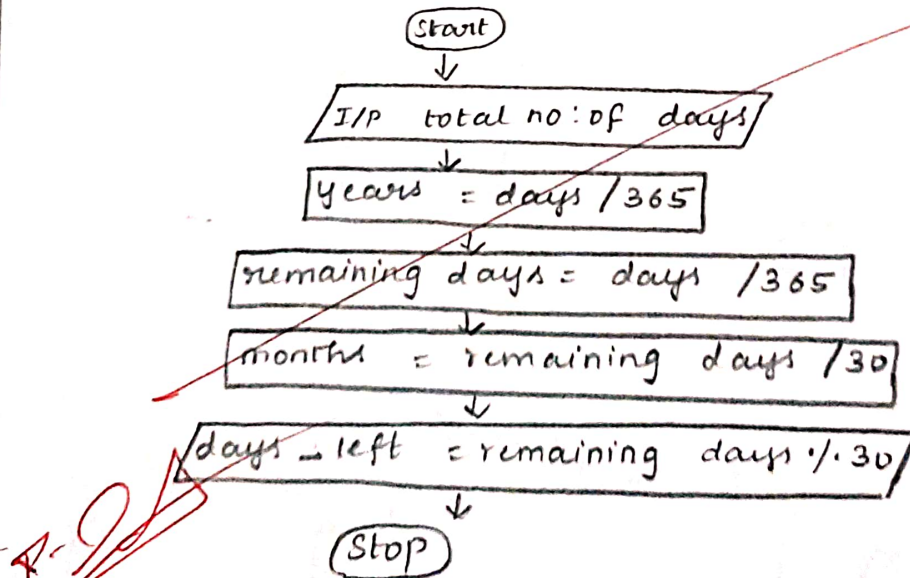 Start
I/P total no: of days
years = days / 365
remaining days = days / 365
months = remaining days / 30
days_left = remaining days % 30
Stop